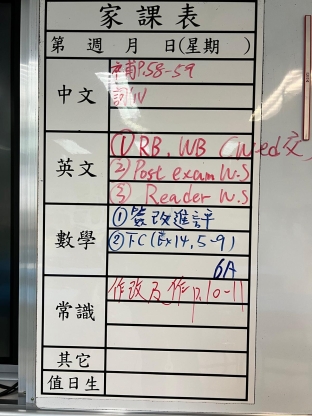 家課表
第 週 月 日(星期 )
中文
補P.58-59
詞IV
英文
① RB, WB (Wed交)
② Post exam W.S
③ Reader W.S
數學
① 簽改進評
② TC (Ex14, 5-9)
6A
常識
作改及作P.10-11
其它
值日生